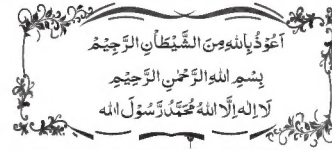 اَعُوْذُ بِاللّٰهِ مِنَ الشَّيْطٰانِ الرَّجِيْمْ
بِسْمِ اللّٰهِ الرَّحْمٰنِ الرَّحِيْمِ
لَا اِلٰهَ اِلَّا اللّٰهُ مُحَمَّدٌ رَّسُوْلَ اللّٰه